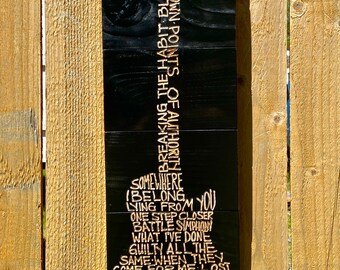 BREAKING THE HABIT
OWN POINTS OF AUTHORITY
SOMEWHERE
I BELONG
LYING FROM YOU
ONE STEP CLOSER
BATTLE SYMPHONY
WHAT I'VE DONE
GUILTY ALL THE
SAME WHEN THEY
COME FOR ME LOST